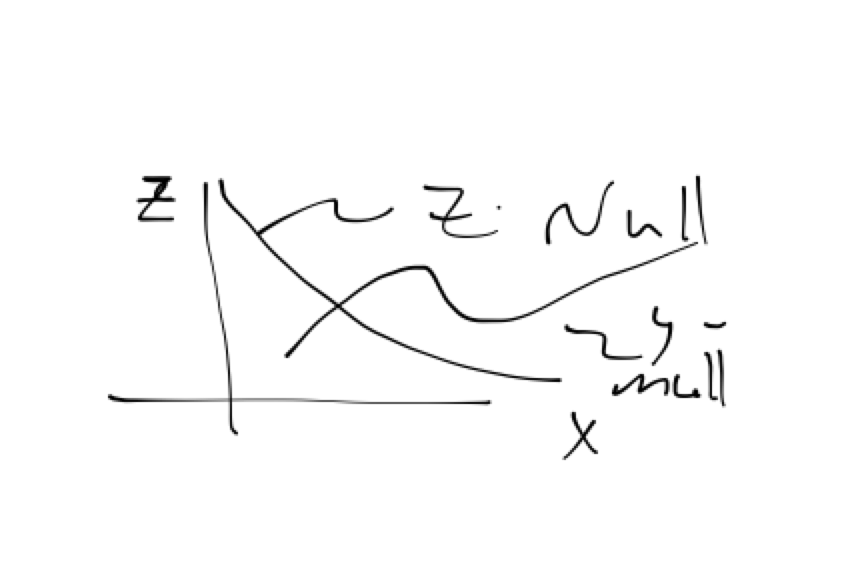 Z
Z. Null
y-
null
X